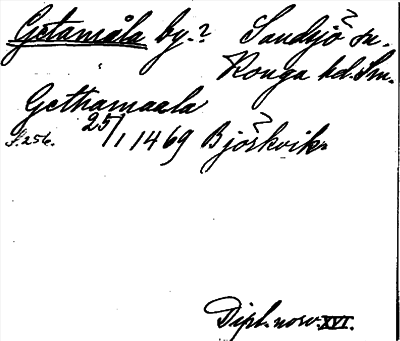 Getamåla by.? Sandsjö sn.
Konga hd. Sm.
Gethamaala
S. 256. 25/1 1469 Björkvik.
Dipl. norv. XVI.